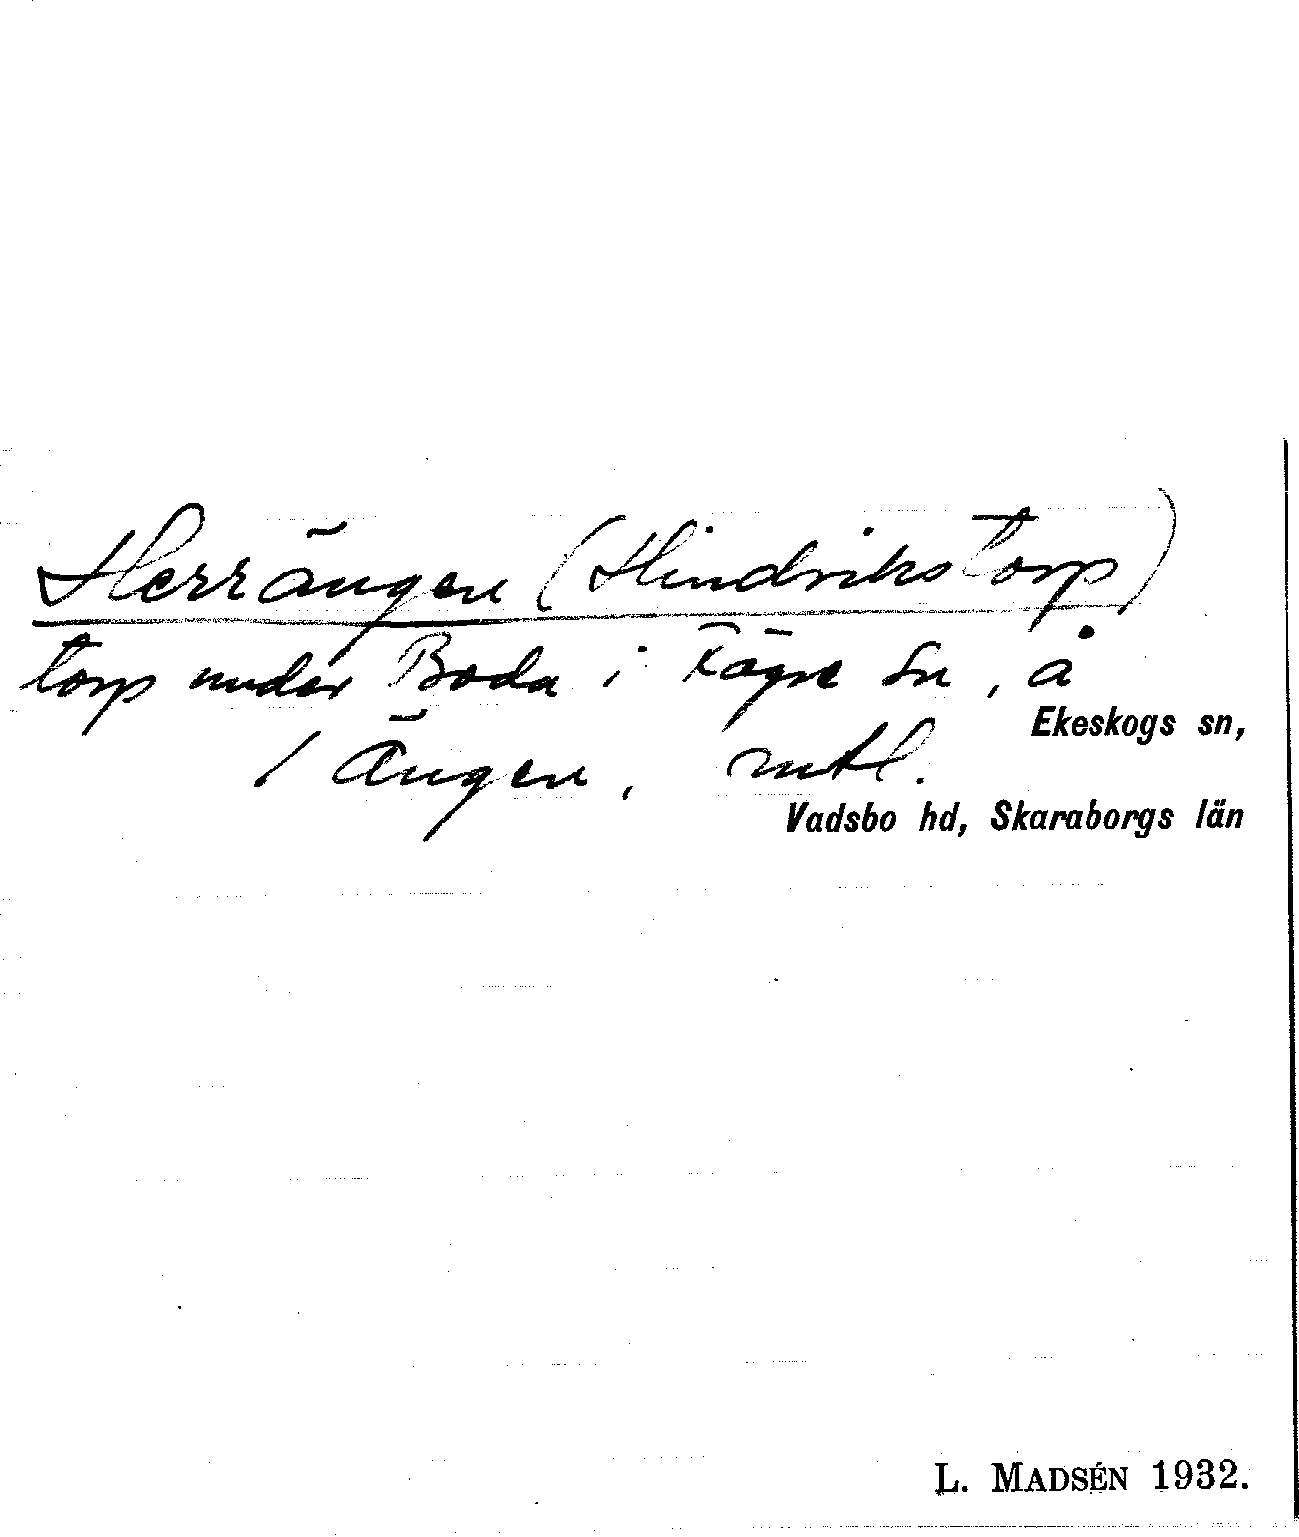 Herrängen (Hindrikstorp)
torp under Boda i Fägre sn, å
Ekeskogs sn,
1 Ängen, mtl.
Vadsbo hd, Skaraborgs län
L. MADSÉN 1932.